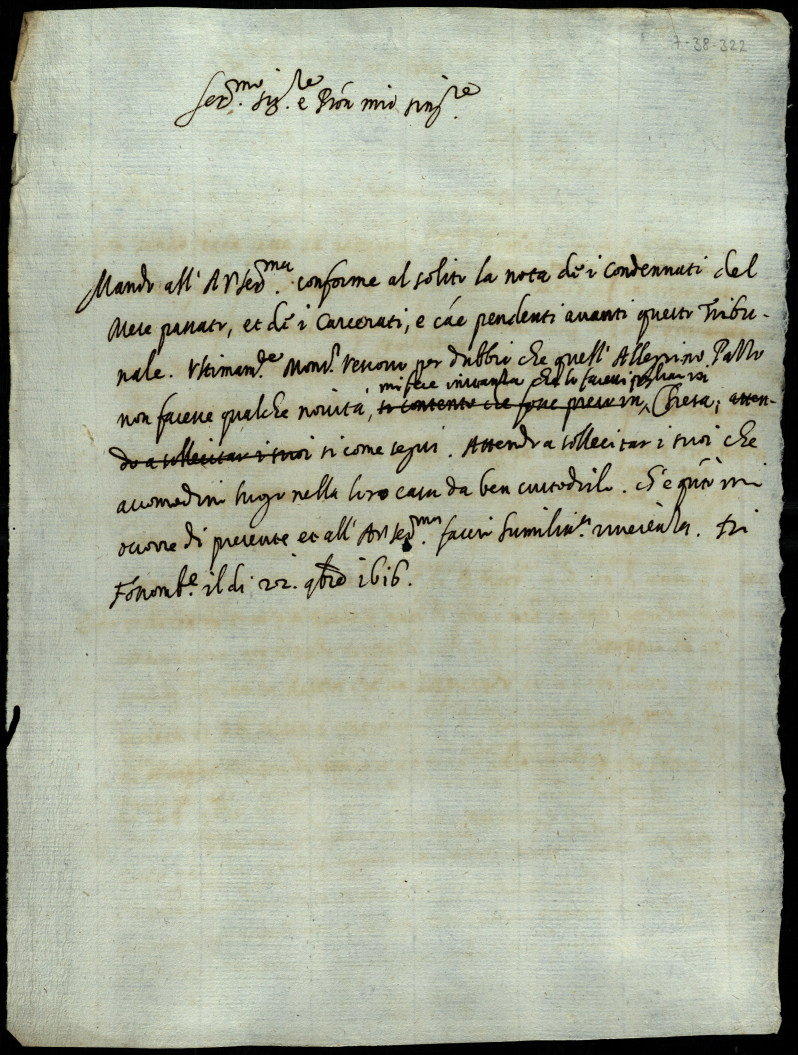 7-38-322
Ser.mo Sig.re e Prōn mio sing.re
Mando all' A V Ser.ma conforme al solito la nota de i Condennati del
Mese passato, et de i Carcerati, e cāe pendenti avanti questo Tribu-
nale. Ultimam.te Mons.r Vescovo per dubbio che quell' Allessino Pazzo
mi fece instanza che lo facessi pigliar in
non facesse qualche novità, si contentò che fosse preso in Chiesa; atten-
do a sollecitar i suoi si come seguì. Attendo a sollecitar i suoi che
accomodino luogo nella loro casa da ben custodirlo. Ch'è q.to mi
occorre di presente et all' A V Ser.ma faccio humiliss.a riverenza. Di
il di 22. 9bre 1616.